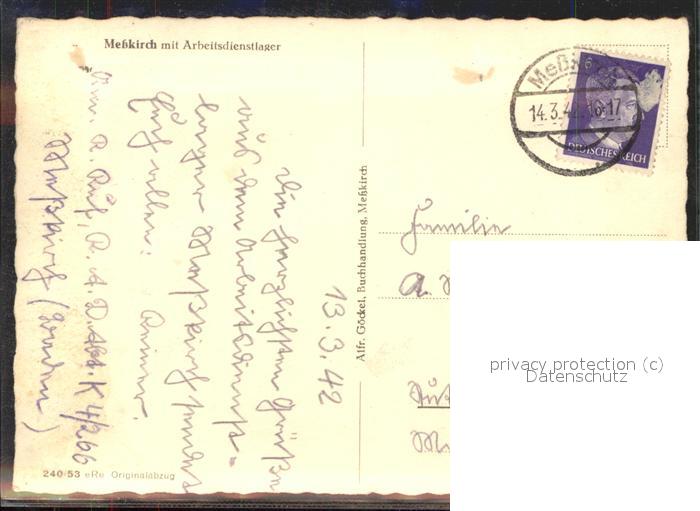 Meßkirch mit Arbeitsdienstlager
14.3.42.16-17
DEUTSCHES REICH
6
13.3.42
Die herzlichsten Grüße
aus dem Arbeitsdienst-
lager Meßkirch sendet
Euch allen:
R. A. D. Abt. K 4/266
Meßkirch (Baden)
Familie
A.
Alfr. Göckel, Buchhandlung, Meßkirch
240/53 eRe Originalabzug
privacy protection (c)
Datenschutz